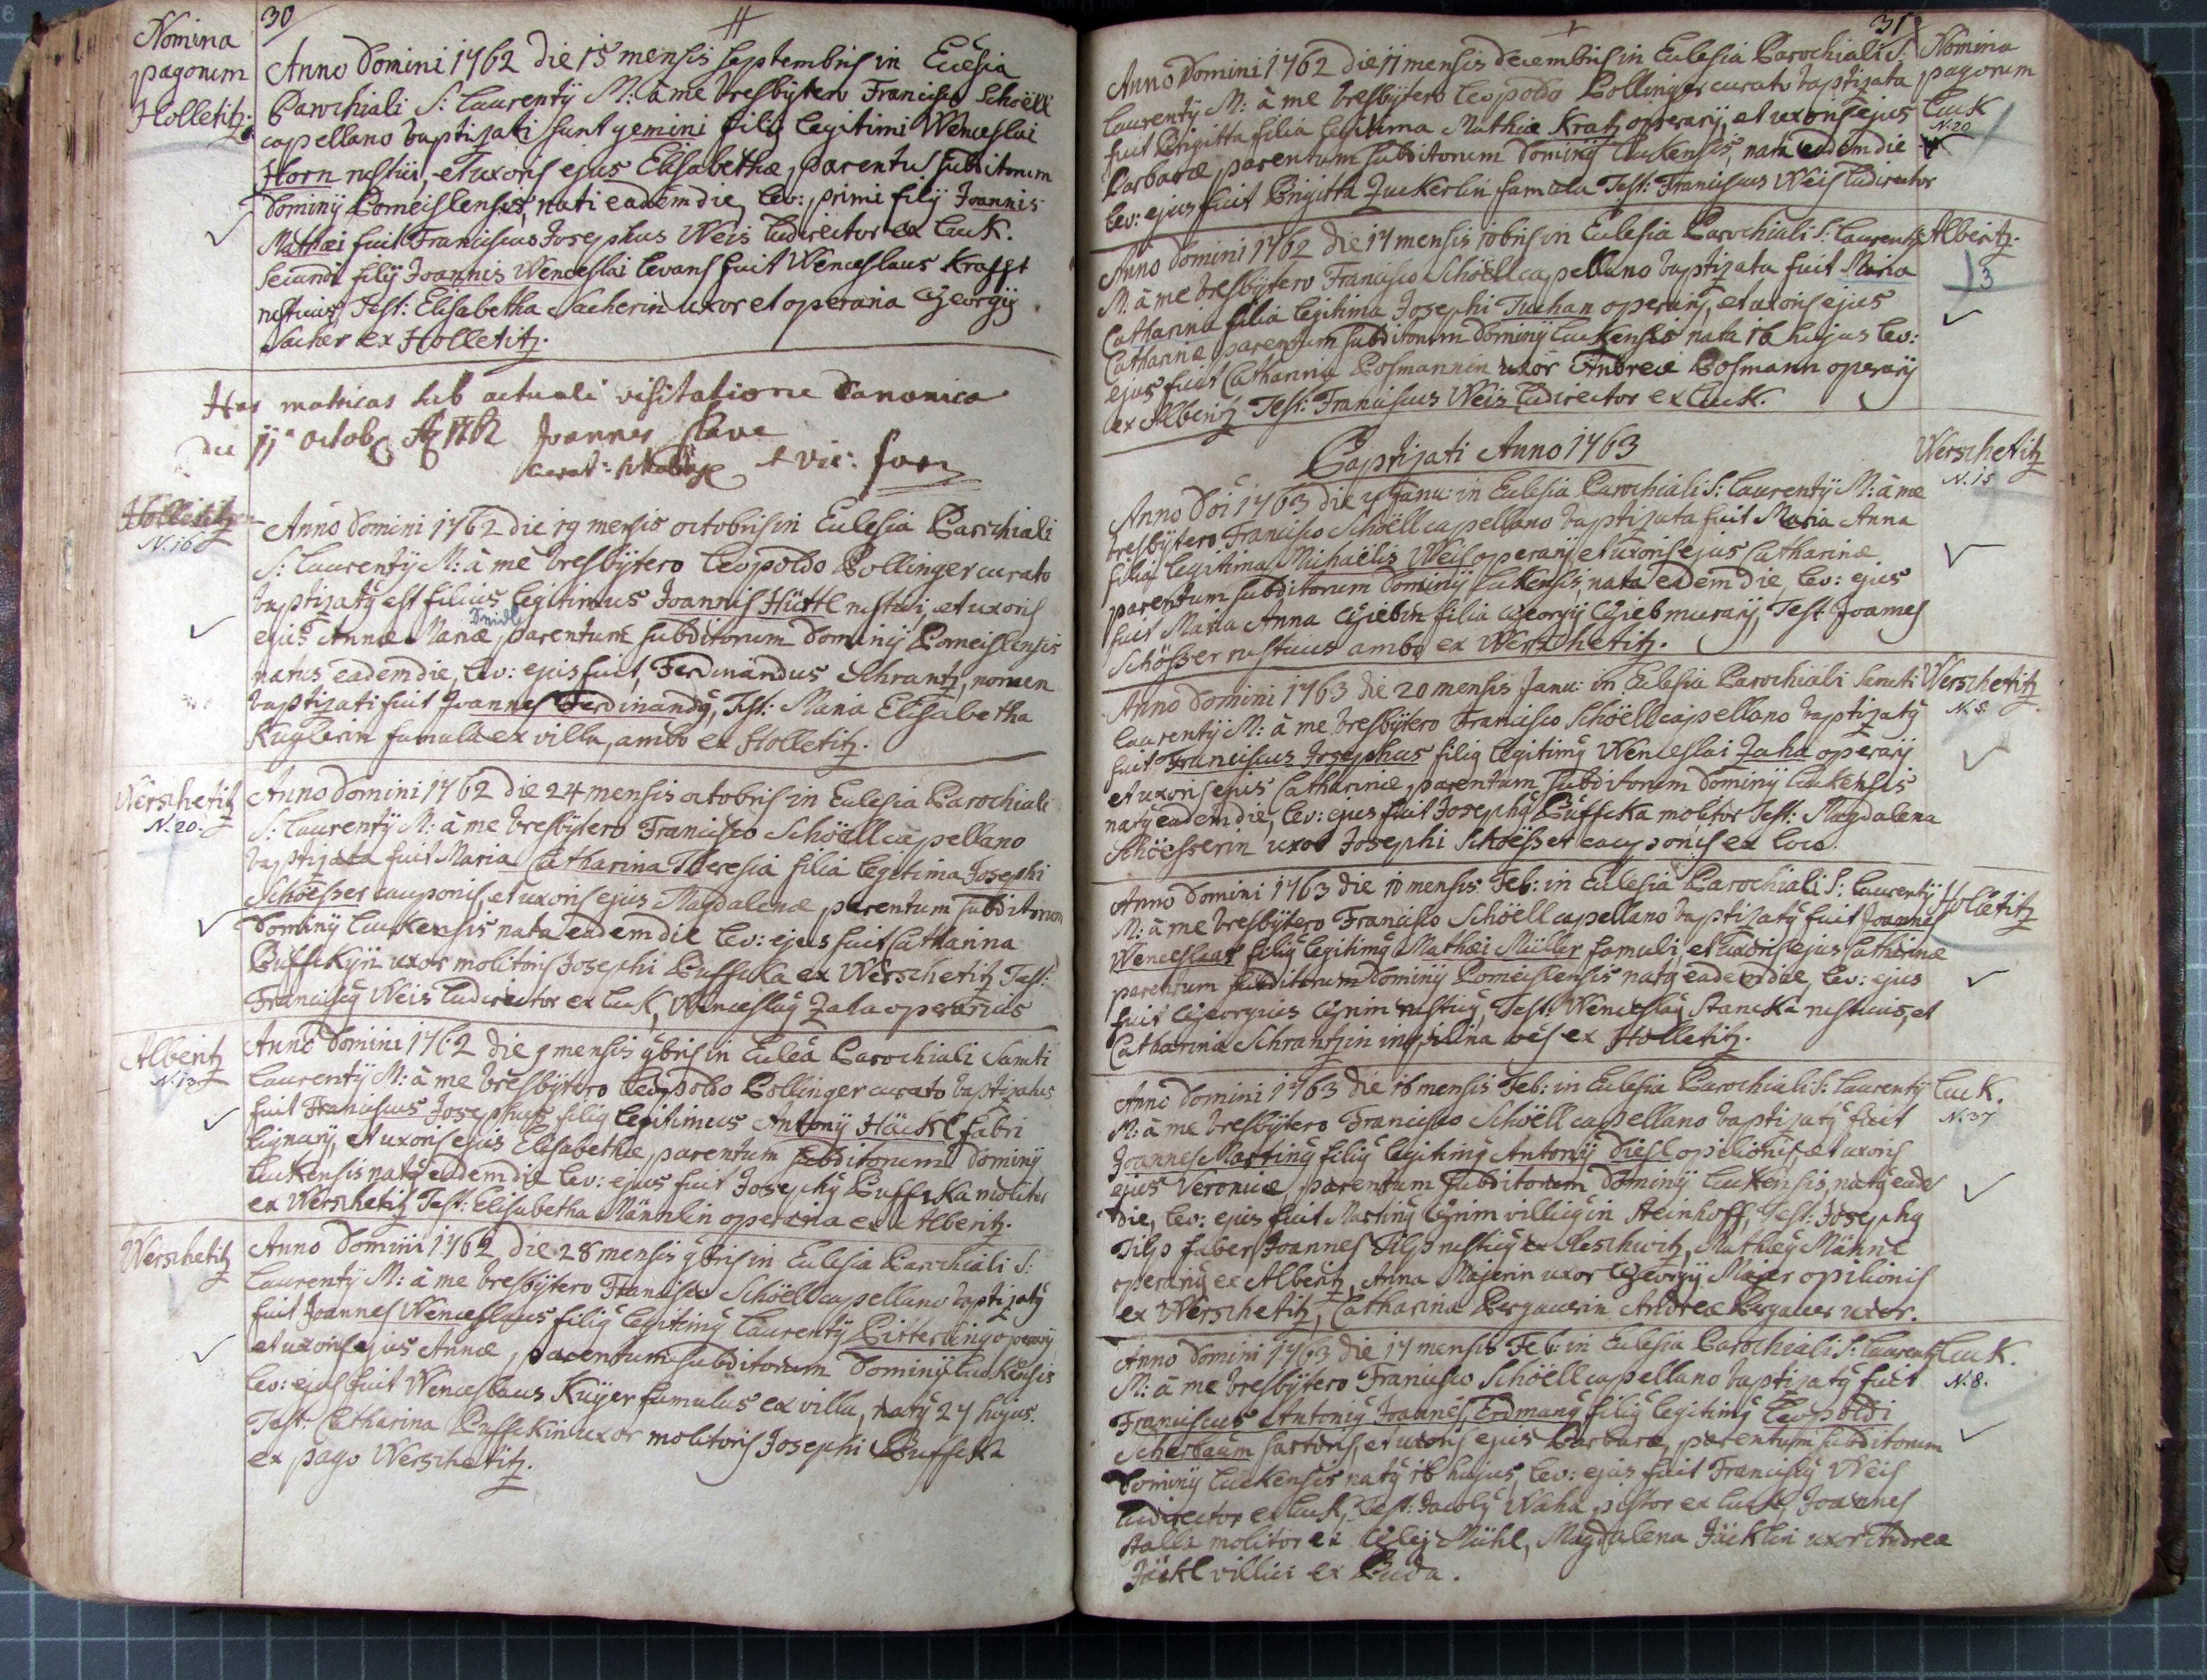 30
Nomina
pagorum
Holletitz.
Anno Domini 1762 die 15 mensis Septembris in Eccl̃esia
Parochiali S: Laurentÿ M: à me Presbÿtero Francisco Schöell
capellano baptizati sunt gemini filÿ legitimi Wenceslai
Horn rustici, et uxoris ejus Elisabethæ, parentũ subditorum
Dominÿ Pomeislensis, nati eadem die, lev: primi filÿ Joannis
Mathæi fuit Franciscus Josephus Weis ludirector ex Luck.
secundi filÿ Joannis Wenceslai levans fuit Wenceslaus Krafft
rusticus, Test: Elisabetha Sacherin uxor et operaria Georgÿ
Sacher ex Holletitz.
Has matricas sub actuali visitatione Canonica
die octob Joannes
Holletitz
N. 16
Anno Domini 1762 die 19 mensis octobris in Ecclesia Parochiali
S: Laurentÿ M: à me Presbÿtero Leopoldo Pollinger curato
baptizatq est filius legitimus Joannis Hüttl rustici, et uxoris
ejus Annæ Mariæ, parentum subditorum Dominÿ Pomeislensis
natus eadem die, lev: ejus fuit, Ferdinandus Schrantz, nomen
baptizati fuit Joannes Ferdinandq, Test: Maria Elisabetha
Kuglerin famula ex villa, ambo ex Holletitz.
Werschetitz
N. 20.
Anno Domini 1762 die 24 mensis octobris in Ecclesia Parochiali
S: Laurentÿ M: à me Presbÿtero Francisco Schöell capellano
baptizata fuit Maria Catharina Theresia filia legitima Josephi
Schöesser cauponis, et uxoris ejus Magdalenæ, parentum subditorum
Dominÿ Luckensis nata eadem die lev: ejus fuit Catharina
Puffckÿn uxor molitoris Josephi Puffcka ex Werschetitz Test:
Franciscq Weis ludirector ex Luck, Wenceslaq Zaha operarius
Alberitz
N. 13
Anno Domini 1762 die 9 mensis 9bris in Eccl̃ea Parochiali Sancti
Laurentÿ M: à me Presbÿtero Leopoldo Pollinger curato baptizatus
fuit Franciscus Josephus filiq legitimus Antonÿ Häckl fabri
lignarÿ, et uxoris ejus Elisabethæ, parentum subditorum Dominÿ
Luckensis natq eadem die lev: ejus fuit Josephq Puffcka molitor
ex Werschetitz Test: Elisabetha Männlin operaria ex Alberitz.
Werschetitz
Anno Domini 1762 die 28 mensis 9bris in Ecclesia Parochiali S:
Laurentÿ M: à me Presbÿtero Francisco Schöell capellano baptizatq
fuit Joannes Wenceslaus filiq legitimq Laurentÿ Pitterling operarÿ
et uxoris ejus Annæ, parentum subditorum Dominÿ Luckensis
lev: ejus fuit Wenceslaus Kuÿer famulus ex villa, natq 27 hujus.
Test: Catharina Puffckin uxor molitoris Josephi Puffcka
ex pago Werschetitz.
31
Nomina
pagorum
Luck
N. 20
Anno Domini 1762 die 11 mensis Decembris in Ecclesia Parochiali S.
Laurentÿ M: à me Presbÿtero Leopoldo Pollinger curato baptizata
fuit Brigitta filia legitima Mathiæ Kratz operarÿ, et uxoris ejus
Barbaræ, parentum subditorum Dominÿ Luckensis, nata eadem die
lev: ejus fuit Brigitta Zuckerlin famula Test: Franciscus Weis ludirector
Alberitz.
13
Anno Domini 1762 die 17 mensis 10bris in Ecclesia Parochiali S: Laurentÿ
M: à me Presbÿtero Francisco Schöell capellano baptizata fuit Maria
Catharina filia legitima Josephi Tuchan operarÿ, et uxoris ejus
Catharinæ parentum subditorum Dominÿ Luckensis nata 16 hujus lev:
ejus fuit Catharina Posmannin uxor Andreæ Posmann operarÿ
ex Alberitz. Test: Franciscus Weis ludirector ex Luck.
Baptizati Anno 1763
Werschetitz
N. 15
Anno Doi 1763 die Janu: in Ecclesia Parochiali S: Laurentÿ M: à me
Presbÿtero Francisco Schöell capellano baptizata fuit Maria Anna
filia legitima Michaëlis Weis operarÿ et uxoris ejus Catharinæ
parentum subditorum Dominÿ Luckensis, nata eadem die, lev: ejus
fuit Maria Anna Giebin filia Georgÿ Gieb murarÿ, Test: Joannes
Schösser rusticus ambo ex Werschetitz.
Werschetitz
N. 8.
Anno Domini 1763 die 20 mensis Janu: in Ecclesia Parochiali Sancti
Laurentÿ M: à me Presbÿtero Francisco Schöell capellano baptizatq
fuit Franciscus Josephus filiq legitimq Wenceslai Zaha operarÿ
et uxoris ejus Catharinæ, parentum subditorum Dominÿ Luckensis
natq eadem die, lev: ejus fuit Josephq Puffcka molitor Test: Magdalena
Schöesserin uxor Josephi Schöesser cauponis ex loco.
Holletitz
Anno Domini 1763 die 10 mensis Feb: in Ecclesia Parochiali S: Laurentÿ
M: à me Presbÿtero Francisco Schöell capellano baptizatq fuit Joannes
Wenceslaus filiq legitimq Mathæi Müller famuli, et uxoris ejus Catharinæ
parentum subditorum Dominÿ Pomeislensis natq eadem die, lev: ejus
fuit Georgius Grim rusticq, Test: Wenceslaq Stancka rusticus, et
Catharina Schrantzin inquilina oẽs ex Holletitz.
Luck.
N. 37
Anno Domini 1763 die 16 mensis Feb: in Ecclesia Parochiali S: Laurentÿ
M: à me Presbÿtero Francisco Schöell capellano baptizatq fuit
Joannes Martinq filiq legitimq Antonÿ Diesl opilionis, et uxoris
ejus Veronicæ, parentum subditorum Dominÿ Luckensis, natq eadẽ
die, lev: ejus fuit Martinq Grim villicq in Steinhoff, Test: Josephq
Tilp faber, Joannes Tilp rusticq ex Reschwitz, Mathæq Männl
operariq ex Alberitz, Anna Majerin uxor Georgÿ Majer opilionis
ex Werschetitz, Catharina Bergauerin Andreæ Bergauer uxor.
Luck.
N. 8.
Anno Domini 1763 die 17 mensis Feb: in Ecclesia Parochiali S: Laurentÿ
M: à me Presbÿtero Francisco Schöell capellano baptizatq fuit
Franciscus Antoniq Joannes Erdmanq filiq legitimq Leopoldi
Scherbaum sartoris, et uxoris ejus Barbaræ, parentum subditorum
Dominÿ Luckensis natq 16 hujus, lev: ejus fuit Franciscq Weis
ludirector ex Luck, Test: Jacobq Waha pistor ex Luck, Joannes
Stalla molitor ex Gleÿ Mühl, Magdalena Jäcklin uxor Andreæ
Jäckl villici ex Buda.